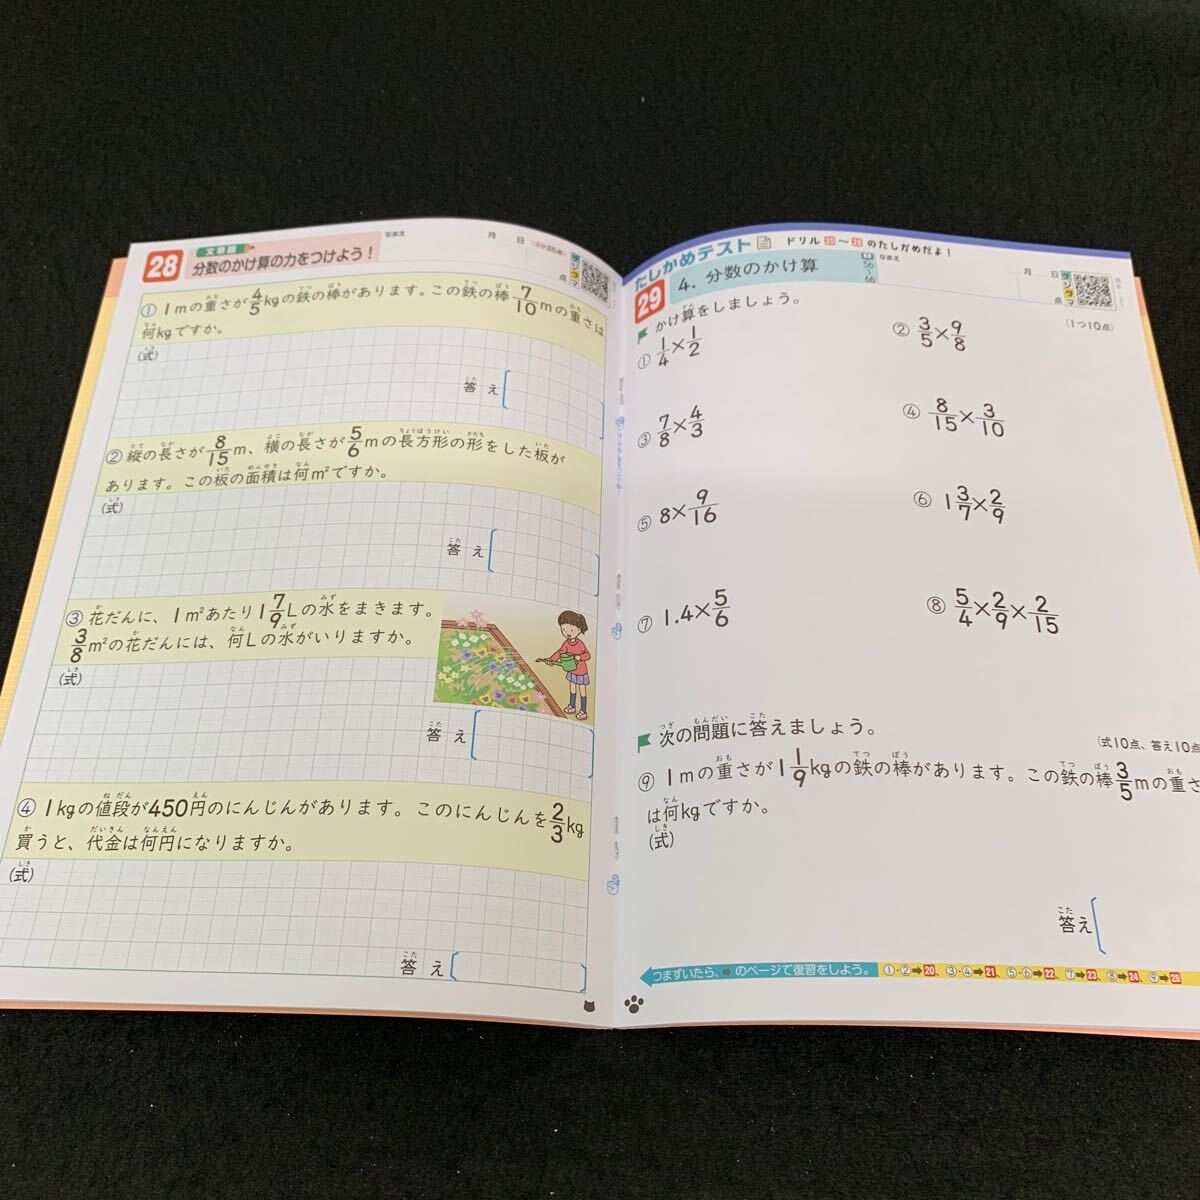 28
文章題
分数のかけ算の力をつけよう！
なまえ
月 日
1つ25点
点
チンタマ
① 1mの重さが4/5kgの鉄の棒があります。この鉄の棒7/10mの重さは
何kgですか。
(式)
答え
② 縦の長さが8/15m、横の長さが5/6mの長方形の形をした板が
あります。この板の面積は何m²ですか。
(式)
答え
③ 花だんに、1m²あたり1 7/9Lの水をまきます。
3/8m²の花だんには、何Lの水がいりますか。
(式)
答え
④ 1kgの値段が450円のにんじんがあります。このにんじんを2/3kg
買うと、代金は何円になりますか。
(式)
答え
たしかめテスト
ドリル20〜28のたしかめだよ！
29
4. 分数のかけ算
56〜66
なまえ
月 日
点
かけ算をしましょう。
(1つ10点)
① 1/4×1/2
② 3/5×9/8
③ 7/8×4/3
④ 8/15×3/10
⑤ 8×9/16
⑥ 1 3/7×2/9
⑦ 1.4×5/6
⑧ 5/4×2/9×2/15
次の問題に答えましょう。
(式10点、答え10点
⑨ 1mの重さが1 1/9kgの鉄の棒があります。この鉄の棒3/5mの重さ
は何kgですか。
(式)
答え
つまずいたら、➡のページで復習をしよう。 ①・②➡20、③・④➡21、⑤・⑥➡22、⑦➡23、⑧➡24、⑨➡26